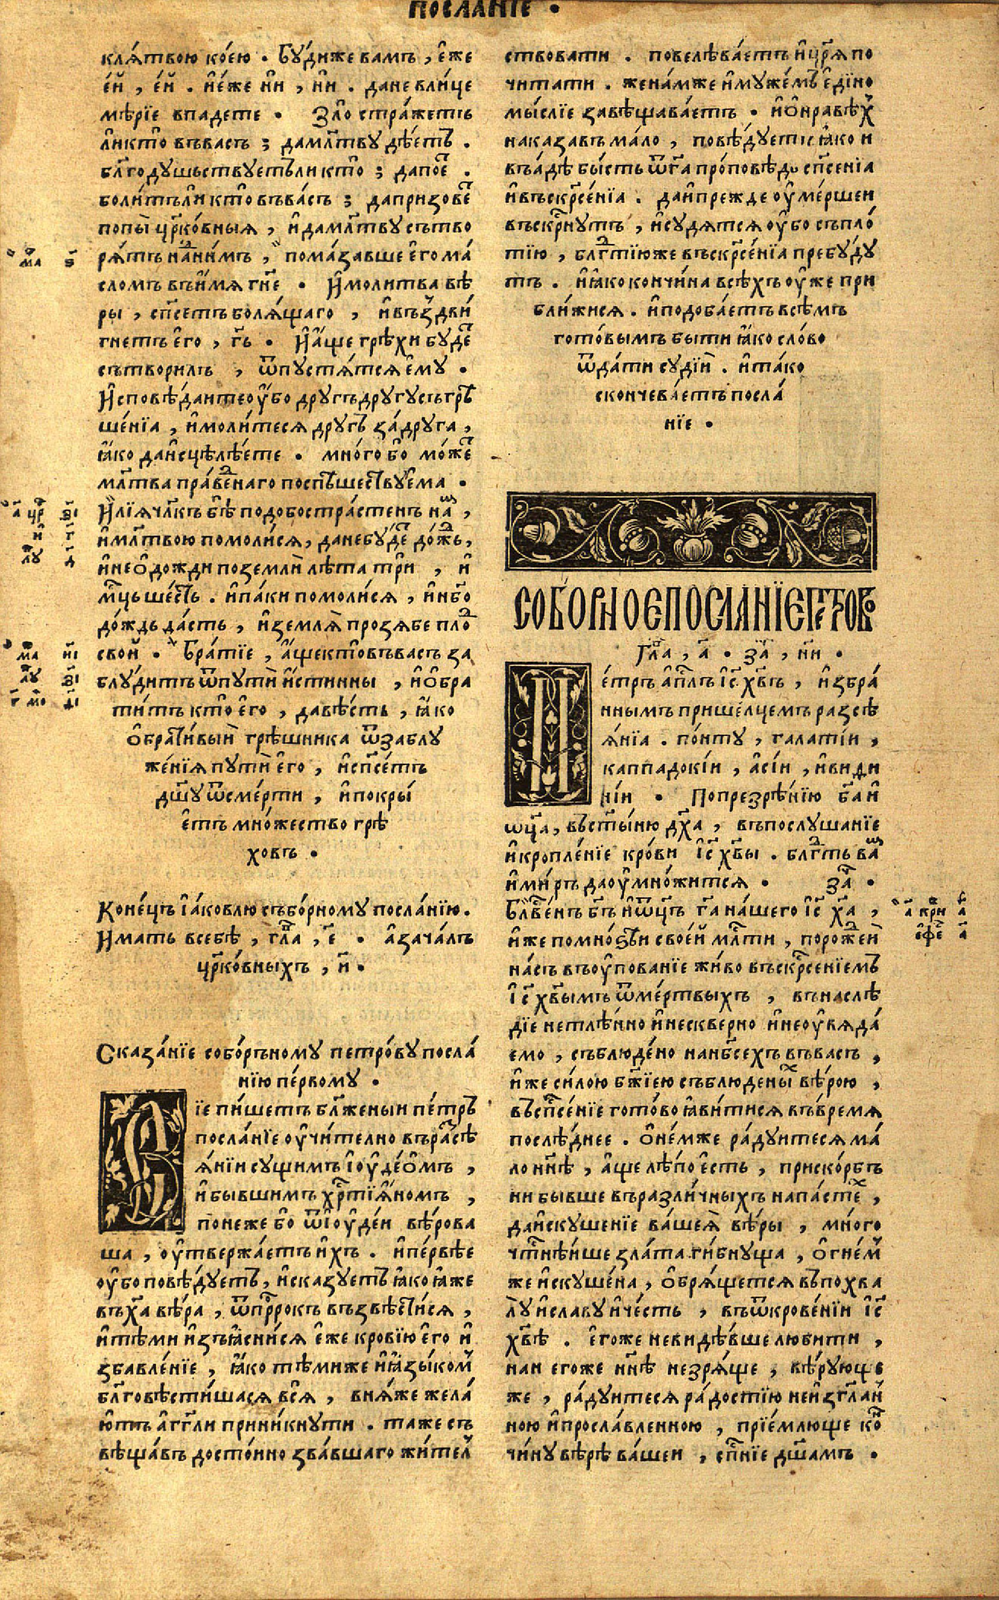 послАнїе •
клѧ́твою ко́ею • Бꙋ́ди же вамъ , є҆́же
є҆́й , є҆́й . и҆ є҆́же нѝ , нѝ . да не в лице
мѣ́рїе впадете • Ѕло стра́жетъ
ли кто въ васъ ; да мл҃твꙋ дѣ́етъ .
бл҃годꙋшьствꙋетъ ли кто ; да пое҆́ .
боли́тъ ли кто въ васъ ; да призове́
попы̀ цр҃ко́вныѧ , и҆ да мл҃твꙋ сътво
рѧ́тъ на́ нимъ , пома́завше є҆го ма́
сломъ въ и҆́мѧ гн҃е • И҆ молитва вѣ́
ры , сп҃се́тъ болѧ́щаго , и҆ въздви́
гнетъ є҆го , гь • И҆ а́ще грѣхи бꙋде
сътворилъ , ѿпꙋстѧ́тсѧ є҆мꙋ •
И҆сповѣ́дайте ᲂу҆́бо дрꙋгъ дрꙋгꙋ съгрѣ
ше́нїѧ , и҆ моли́тесѧ дрꙋгъ за́ дрꙋга ,
ꙗ҆́ко да и҆сцѣлѣ́ете • мно́го бо мо́же
мл҃тва пра́веⷣнаго поспѣшествꙋема •
И҆лїѧ̀ чл҃къ бѣ̀ подобостра́стенъ на́ ,
и҆ мл҃твою помоли́сѧ , да не бꙋ́де до́жь ,
и҆ не ѻ҆дожди по землѝ лѣ́та три , и҆
мц҃ь ше́сть . и҆ па́ки помоли́сѧ , и҆ нб҃о
до́ждь да́сть , и҆ землѧ̀ прозѧ́бе пло́
свой • Бра́тїе , а҆́ще кто въ васъ за
блꙋдитъ ѿ пꙋтѝ и҆́стинны , и҆ ѻ҆бра
ти́тъ кто є҆го , да вѣ́сть , ꙗ҆́ко
ѻ҆брати́вый грѣ́шника ѿ заблꙋ
же́нїѧ пꙋтѝ є҆го , и҆ сп҃се́тъ
дш҃ꙋ ѿ смерти , и҆ покры́
є҆тъ мно́жество грѣ
хо́въ •
Коне́цъ і҆а́ковлю събо́рномꙋ посла́нїю .
И҆мать в себѣ̀ , гл҃а , є҃ • а҆ зача́лъ
цр҃ко́вныхъ , и҃ •
Сказа́нїе собо́рьномꙋ петро́вꙋ посла́
нїю пе́рвомꙋ •
Сїе пи́шетъ бл҃же́нный пе́тръ
посла́нїе ᲂу҆чи́телно въ ра́сѣ
ѧ́нїи сꙋ́щимъ і҆ᲂу҆де́ѡмъ ,
и҆ бы́вшимъ хр҃тїѧ́номъ ,
поне́же бо ѿ і҆ᲂу҆де́и вѣ́рова
ша , ᲂу҆твержа́етъ и҆́хъ . и҆ пе́рвѣе
ᲂу҆́бо повѣ́дꙋетъ , и҆ сказꙋетъ ꙗ҆́ко ꙗ҆́же
въ ха҃ вѣ́ра , ѿ прⷪ҇рокъ възвѣсти́сѧ ,
и҆ тѣ́ми и҆зъꙗ҆сни́сѧ є҆́же кровїю є҆го̀ и҆
збавле́нїе , ꙗ҆́ко тѣ́ми же и҆ ꙗ҆зы́комъ
бл҃говѣсти́шасѧ всѧ̀ , внѧ́же жела́
ютъ а҆́гг҃ли прини́кнꙋти . та́же съ
вѣща́въ досто́йно зва́вшаго жи́тел
ствовати . повелѣва́етъ и҆ цр҃ѧ̀ по
читати . жена́мже и҆ мꙋже́мъ є҆ди́но
мы́слїе завѣщава́етъ • и҆ ѻ҆ нра́вѣхъ
наказа́въ ма́ло , повѣ́дꙋетъ ꙗ҆́ко и҆
въ а́дѣ бы́сть ѿ га҃ про́повѣдь сп҃се́нїа
и҆ въскр҃се́нїа . да и҆ пре́жде ᲂу҆ме́ршеи
въскрⷭ҇нꙋтъ , и҆ сꙋ́дѧтсѧ ᲂу҆́бо съ пло́
тїю , бл҃гⷣтїю же въскр҃се́нїа пребꙋдꙋ
тъ . и҆ ꙗ҆́ко кончи́на всѣ́хъ ᲂу҆́же при
бли́жисѧ . и҆ подоба́етъ всѣ́мъ
гото́вымъ бы́ти ꙗ҆́ко сло́во
ѿда́ти сꙋдїѝ . и҆ та́ко
сконче́ваетъ посла́
нїе •
СОБО́РНОЄ ПОСЛА́НЇЄ ПЄТРОВО
Гл҃а , а҃ • за҃ , н҃и •
Пе́тръ а҆пⷭ҇лъ і҆с҃ хв҃ъ , и҆збра́
ннымъ прише́лцемъ разсѣ
ѧ́нїа . по́нтꙋ , гала́тїи ,
каппадокі́и , а҆сі́и , и҆ види
ні́и • По презрѣ́нїю ба҃ и҆
ѡц҃а , въ ст҃ы́ню дх҃а , въ послꙋша́нїе
и҆ кропле́нїе кро́ви і҆с҃ хв҃ы . блгⷣть ва́
и҆ ми́ръ да ᲂу҆мно́житсѧ • за҃ •
Бл҃ве́нъ бг҃ъ и҆ ѡц҃ъ га҃ на́шего і҆с҃ ха҃ ,
и҆́же по мно́ѕѣй своей мл҃ти , порожей
на́съ въ ᲂу҆пова́нїе жи́во въскр҃се́нїемъ
і҆с҃ хв҃ымъ ѿ ме́ртвыхъ , въ наслѣ́
дїе нетлѣ́нно и҆ нескве́рно и҆ не ᲂу҆вѧда́
емо , съблюде́но на нб҃сехъ въ васъ ,
и҆́же си́лою бж҃їею съблюде́ны вѣ́рою ,
въ сп҃се́нїе гото́во ꙗ҆ви́тисѧ въ вре́мѧ
послѣ́днее . ѻ҆ не́мже ра́дꙋитесѧ ма́
ло нн҃ѣ , а҆́ще лѣ́по є҆́сть , приско́рбъ
ни бы́вше въ разли́чныхъ напа́сте ,
да и҆скꙋше́нїе ва́шеѧ вѣ́ры , мно́го
чⷭ҇тнѣ́йше зла́та ги́бнꙋща , ѻ҆гне́м
же и҆скꙋше́на , ѻ҆брѧ́щетсѧ въ похва
лꙋ̀ и҆ сла́вꙋ и҆ че́сть , въ ѿкрове́нїи і҆с҃
хв҃ѣ . є҆го́же не ви́дѣвше лю́бите ,
нан є҆го́же нн҃ѣ не зрѧ́ще , вѣ́рꙋюще
же , ра́дꙋитесѧ ра́достїю неизгл҃ан
ною и҆ просла́вленною , прїе́млюще ко
чи́нꙋ вѣ́рѣ ва́шеи , сп҃нїе дш҃а́мъ •